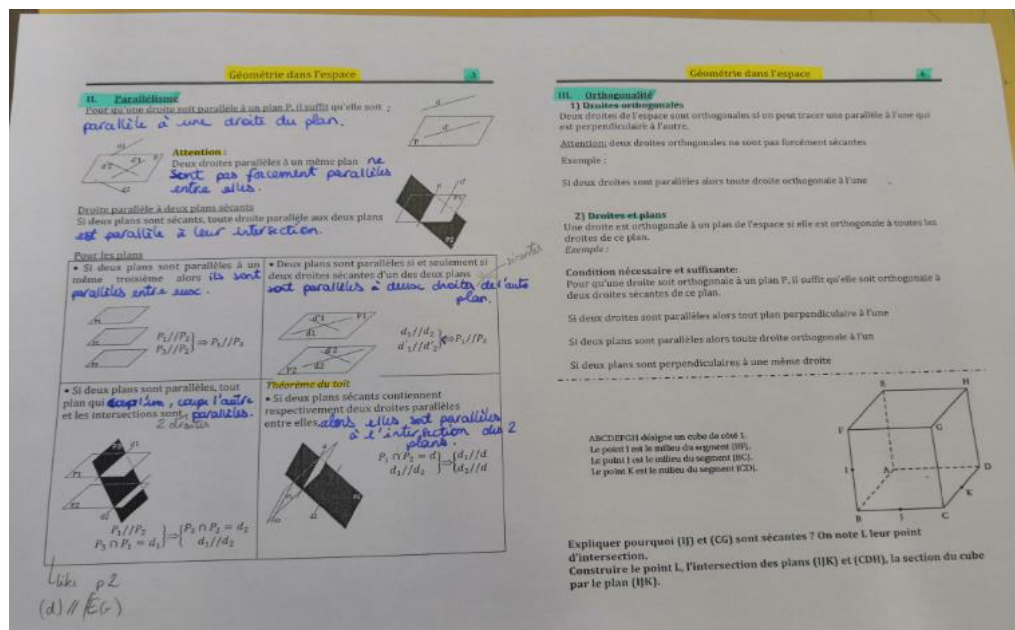 Géométrie dans l'espace
3
II. Parallélisme
Pour qu'une droite soit parallèle à un plan P, il suffit qu'elle soit :
parallèle à une droite du plan.
Attention :
Deux droites parallèles à un même plan ne
sont pas forcement parallèles
entre elles.
Droite parallèle à deux plans sécants
Si deux plans sont sécants, toute droite parallèle aux deux plans
est parallèle à leur intersection.
Pour les plans
• Si deux plans sont parallèles à un
même troisième alors ils sont
parallèles entre eux.
P₁//P₂
P₃//P₂ } ⇒ P₁//P₃
• Deux plans sont parallèles si et seulement si
deux droites sécantes d'un des deux plans
sont parallèles à deux droites de l'autre
plan.
d₁//d₂
d'₁//d'₂ } ⇔ P₁//P₂
• Si deux plans sont parallèles, tout
plan qui coupe l'un, coupe l'autre
et les intersections sont parallèles.
2 droites
P₁//P₂
P₃ ∩ P₁ = d₁ } ⇒ { P₃ ∩ P₂ = d₂
d₁//d₂
Théorème du toit
• Si deux plans sécants contiennent
respectivement deux droites parallèles
entre elles, alors elles sont parallèles
à l'intersection des 2
plans.
P₁ ∩ P₂ = d
d₁//d₂ } ⇒ { d₁//d
d₂//d
p2
(d) // (EG)
Géométrie dans l'espace
4
III. Orthogonalité
1) Droites orthogonales
Deux droites de l'espace sont orthogonales si on peut tracer une parallèle à l'une qui
est perpendiculaire à l'autre.
Attention: deux droites orthogonales ne sont pas forcément sécantes
Exemple :
Si deux droites sont parallèles alors toute droite orthogonale à l'une
2) Droites et plans
Une droite est orthogonale à un plan de l'espace si elle est orthogonale à toutes les
droites de ce plan.
Exemple :
Condition nécessaire et suffisante:
Pour qu'une droite soit orthogonale à un plan P, il suffit qu'elle soit orthogonale à
deux droites sécantes de ce plan.
Si deux droites sont parallèles alors tout plan perpendiculaire à l'une
Si deux plans sont parallèles alors toute droite orthogonale à l'un
Si deux plans sont perpendiculaires à une même droite
ABCDEFGH désigne un cube de côté 1.
Le point I est le milieu du segment [BF].
Le point J est le milieu du segment [BC].
Le point K est le milieu du segment [CD].
E H
F G
I A D
K
B J C
Expliquer pourquoi (IJ) et (CG) sont sécantes ? On note L leur point
d'intersection.
Construire le point L, l'intersection des plans (IJK) et (CDH), la section du cube
par le plan (IJK).